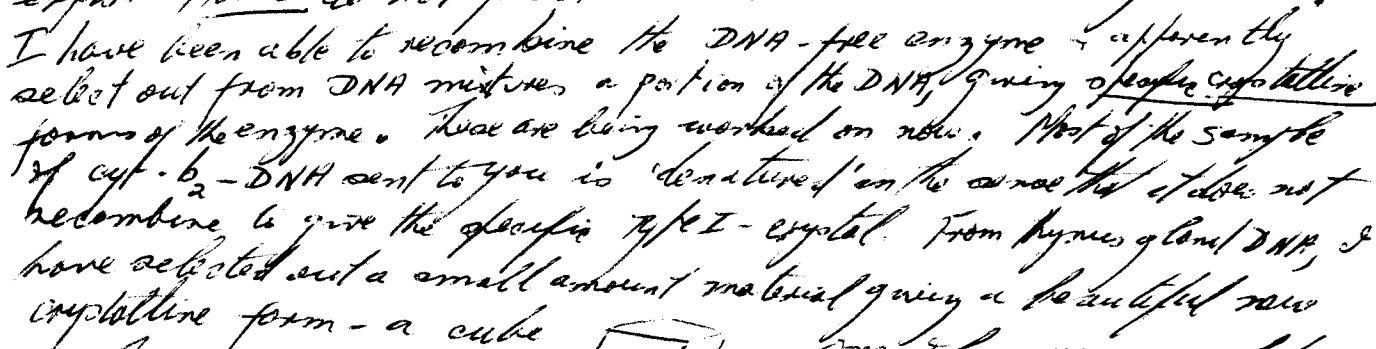 I have been able to recombine the DNA-free enzyme & apparently
select out from DNA mixtures a portion of the DNA, giving specific crystalline
forms of the enzyme. These are being worked on now. Most of the sample
of cyt. b2-DNA sent to you is 'denatured' in the sense that it does not
recombine to give the specific Type I-crystal. From thymus gland DNA, I
have selected out a small amount material giving a beautiful new
crystalline form - a cube